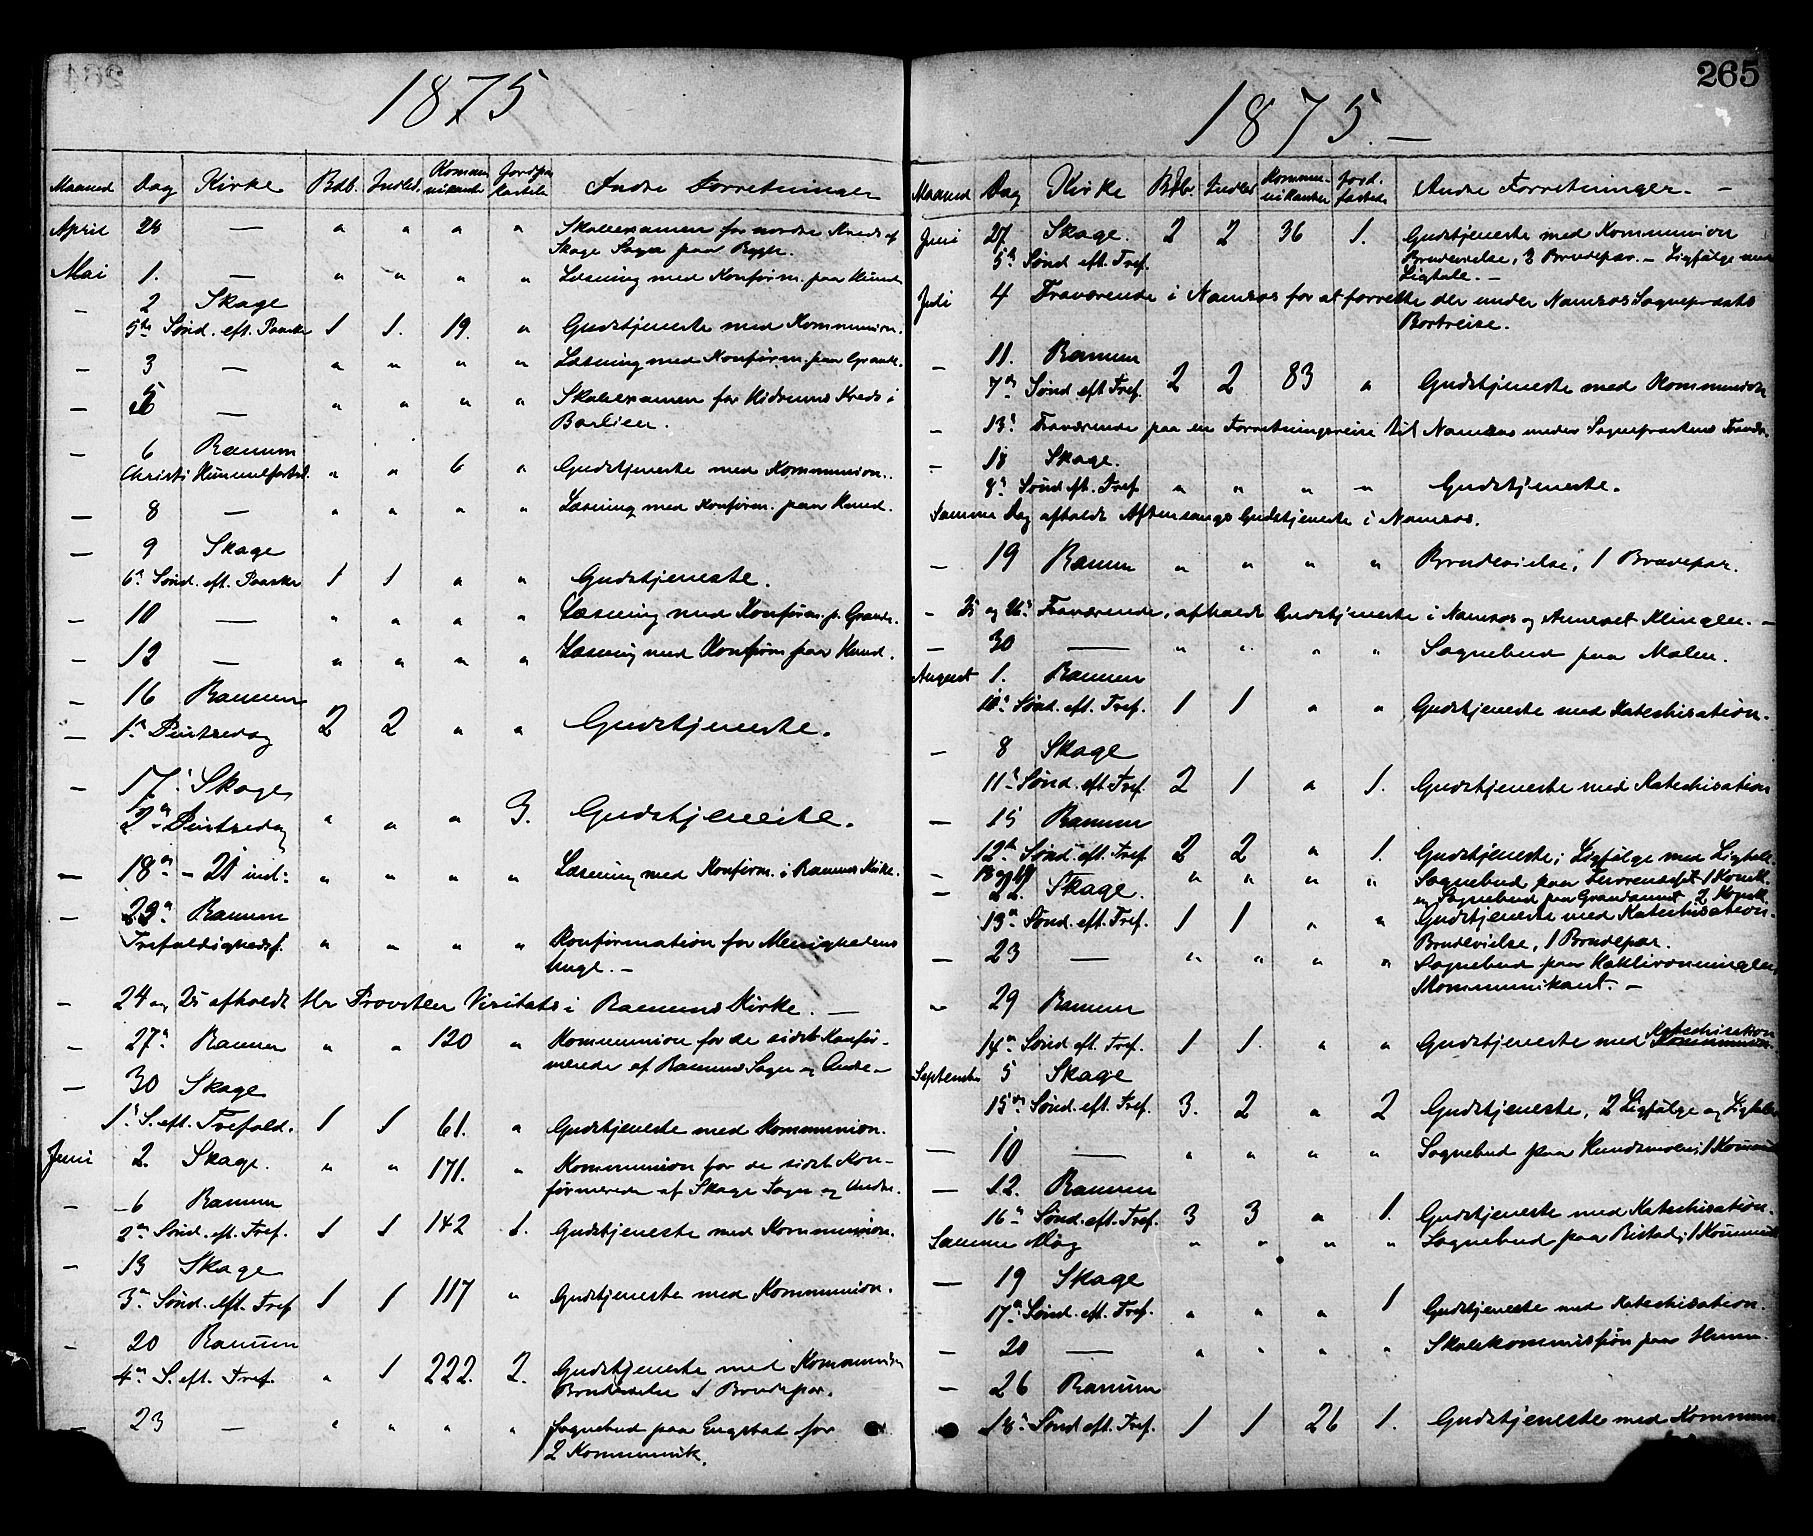 1875
Maaned Dag Kirke Bdb. Indled. Kommunikanter Jordpaakastelse Andre Forretninger
April 28 — " " " " Skoleexamen for nordre Kreds af
Skage Sogn paa Bygle.
Mai 1. — " " " " Læsning med Konfirm. paa Hund
— 2 Skage
5te Sønd. eft. Paaske 1 1. 19. " Gudstjeneste med Kommunion.
— 3 — " " " " Læsning med Konfirm. paa Grande.
— 5 — " " " " Skoleexamen for Kreds i
Barlien.
— 6 Ranum
Christi Himmelfartsd. " " 6 " Gudstjeneste med Kommunion.
— 8 — " " " " Læsning med Konfirm. paa Hund.
— 9 Skage
6te Sønd. eft. Paaske 1 1 " " Gudstjeneste.
— 10 — " " " " Læsning med Konfirm. p. Grande.
— 12 — " " " " Læsning med Konfirm paa Hund.
— 16 Ranum
— 1ste Pintsedag 2 2 " " Gudstjeneste.
— 17. Skage
2den Pintsedag " " " 3. Gudstjeneste.
— 18de – 21 incl: " " " " Læsning med Konfirm. i Ranums Kirke.
— 23de Ranum
Trefoldighedsf. " " " " Konfirmation for Menighedens
Unge. —
— 24 og 25 afholdt Hr Provsten Visitats i Ranums Kirke. —
— 27de Ranum " " 120 " Kommunion for de sidst Konfir-
merede af Ranums Sogn og Andre—
— 30 Skage
1ste S. eft. Trefold. 1 1 61. " Gudstjeneste med Kommunion.
Juni 2. Skage. " " 171. " Kommunion for de sidst Kon-
firmerede af Skage Sogn og Andre.
— 6 Ranum
2den Sønd. eft. Tref. 1 1 142 1. Gudstjeneste med Kommunion.
— 13 Skage
3die Sønd. eft. Tref 1 1 117 " Gudstjeneste med Kommunion.
— 20 Ranum
4de S. eft. Tref. " 1 222. 2. Gudstjeneste med Kommunion
Brudevielse 1 Brudepar.
— 23 — " " " " Sognebud paa Engstat for
2 Kommunik.
265
1875. —
Maaned Dag Kirke Bdb. Indled Kommunikanter Jord. fæstede Andre Forretninger. —
Juni 27 Skage. 2 2 36 1. Gudstjeneste med Kommunion
5te Sønd eft. Tref. Brudevielse, 2 Brudepar. — Ligfølge med
Ligtale. —
Juli 4 Fraværende i Namsos for at forrette der under Namsos Sogneprests
Bortreise.
— 11. Ranum
7de Sønd eft Tref. 2 2 83 " Gudstjeneste med Kommunion
— 13de Fraværende paa en Forretningsreise til Namsos under Sogneprestens Fravær.
— 18 Skage.
8de Sønd eft. Tref " " " " Gudstjeneste.
Samme Dag afholdt Aftensangs Gudstjeneste i Namsos.
— 19 Ranum " " " " Brudevielse, 1 Brudepar.
— 25 og 26 Fraværende, afholdt Gudstjeneste i Namsos og Annexet Klingen. —
— 30 — " " " " Sognebud paa Malen.
August 1. Ranum
10de Sønd. eft. Tref. 1 1 " " Gudstjeneste med Katechisation.
— 8 Skage
11te Sønd. eft. Tref. 2 1 " 1. Gudstjeneste med Katechisation
— 15 Ranum
12te Sønd. eft. Tref 2 2 " 1. Gudstjeneste; Ligfølge med Ligtale.
18 og 19 " " " " Sognebud paa 1 Komk.
og Sognebud paa 2 Komk.
— 22. Skage.
13de Sønd. eft. Tref. 1 1 " " Gudstjeneste med Katechisation.
Brudevielse, 1 Brudepar.
— 23 — " " " " Sognebud paa
1 Kommunikant. —
— 29 Ranum
14de Sønd eft. Tref. 1 1. " " Gudstjeneste med Kommunion. Katechisation
September 5 Skage
15de Sønd. eft. Tref. 3. 2 " 2 Gudstjeneste, 2 Ligfølge og Ligtaler
— 10 — " " " " Sognebud paa Hundsmoen, 1 Kommunik
— 12. Ranum
16de Sønd. eft. Tref. 3 3 " 1. Gudstjeneste med Katechisation.
Samme Dag " " " " Sognebud paa Ristad; 1 Kommunik
— 19 Skage
17de Sønd. eft. Tref. " " " 1 Gudstjeneste med Katechisation.
— 20 — " " " " Skolekommission paa Hunn.
— 26 Ranum
18de Sønd eft. Tref. 1 1 26 1. Gudstjeneste med Kommun